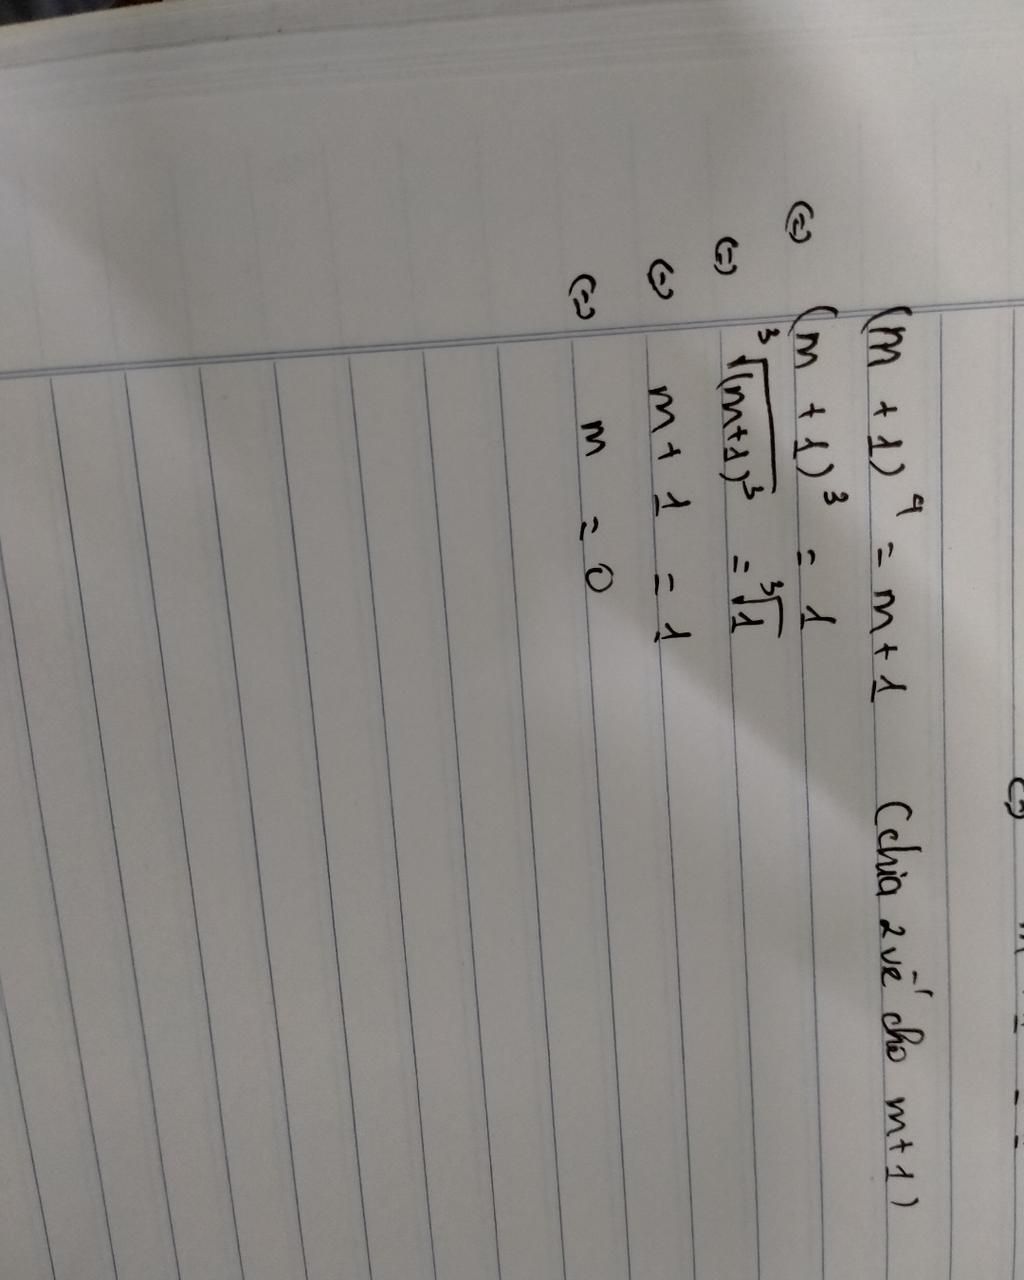 (m + 1)⁴ = m + 1 (chia 2 vế cho m+1)
(=) (m + 1)³ = 1
(=) ³√(m+1)³ = ³√1
(=) m + 1 = 1
(=) m = 0